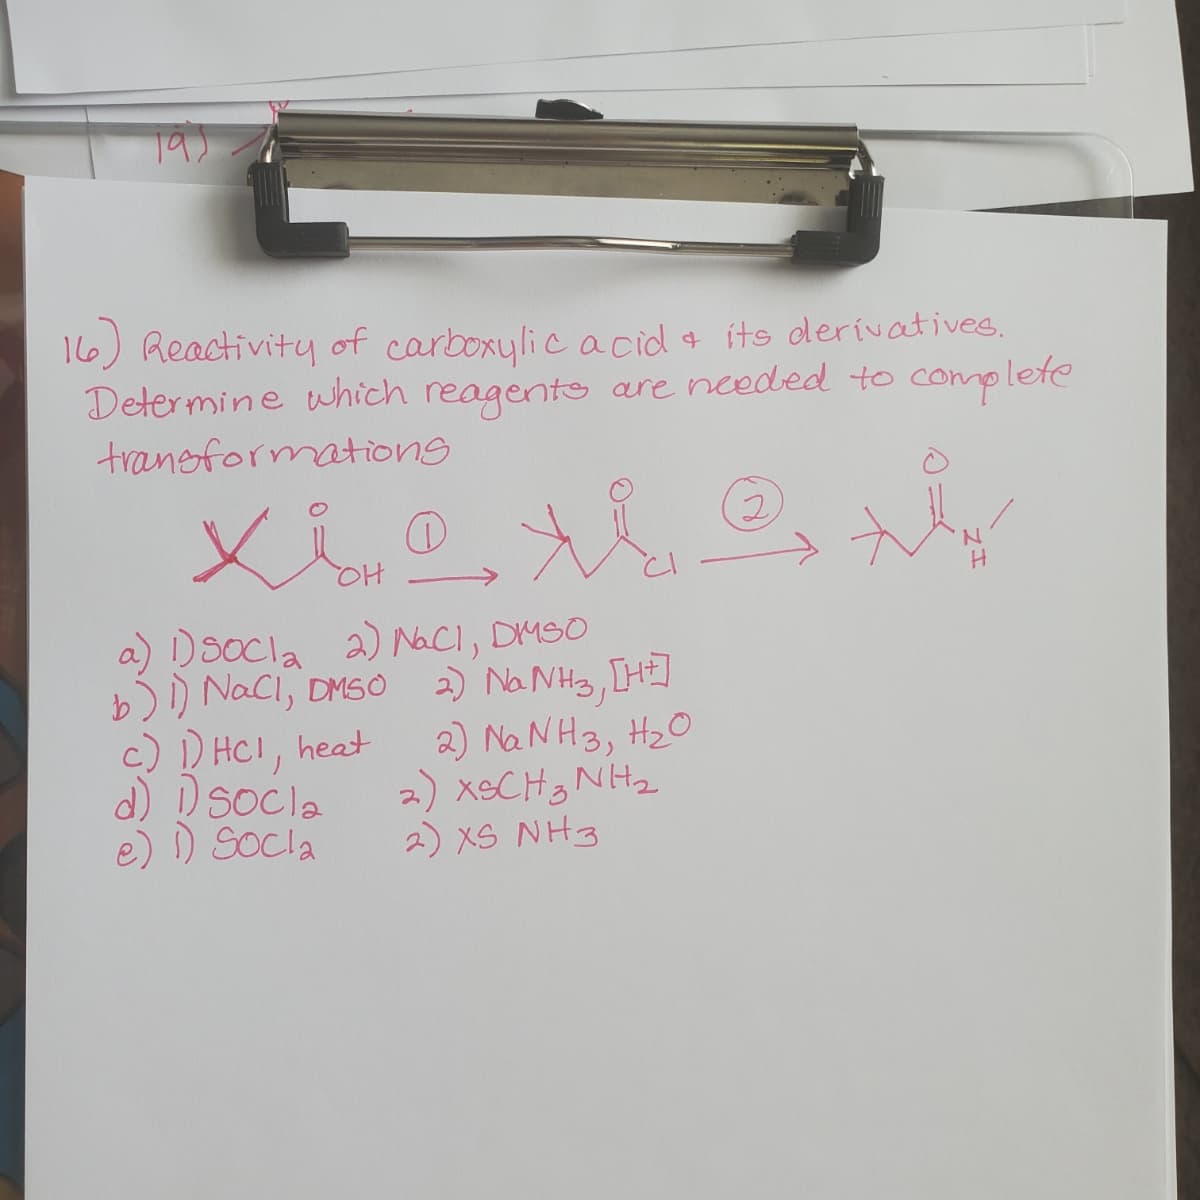 19)
16) Reactivity of carboxylic acid & its derivatives.
Determine which reagents are needed to complete
transformations
O OH ① O Cl ② O N H
a) 1) SOCl2 2) NaCl, DMSO
b) 1) NaCl, DMSO 2) NaNH3, [H+]
c) 1) HCl, heat 2) NaNH3, H2O
d) 1) SOCl2 2) XSCH3NH2
e) 1) SOCl2 2) XS NH3